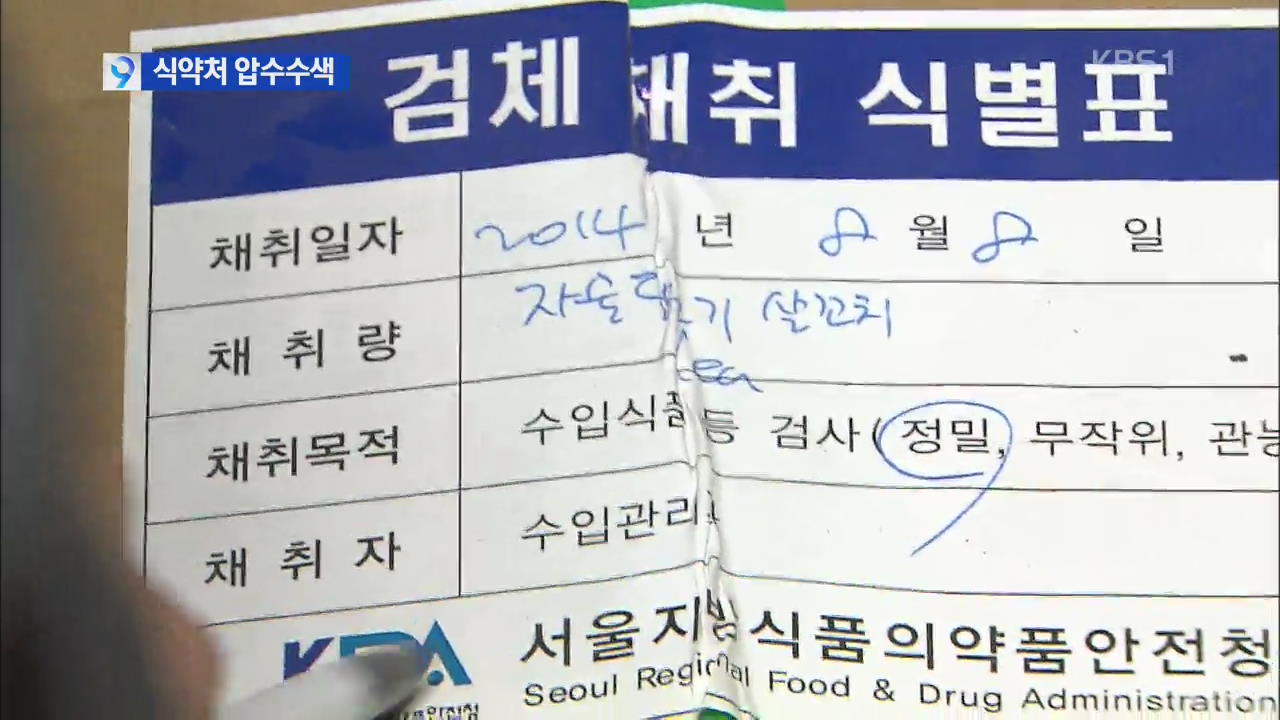 식약처 압수수색
KBS1
검체 채취 식별표
채취일자 2014 년 8 월 8 일
채 취 량 자숙 기 살꼬치
ea
채취목적 수입식품등 검사(정밀, 무작위, 관능
채 취 자 수입관리
KFDA
서울지방식품의약품안전청
Seoul Regional Food & Drug Administration